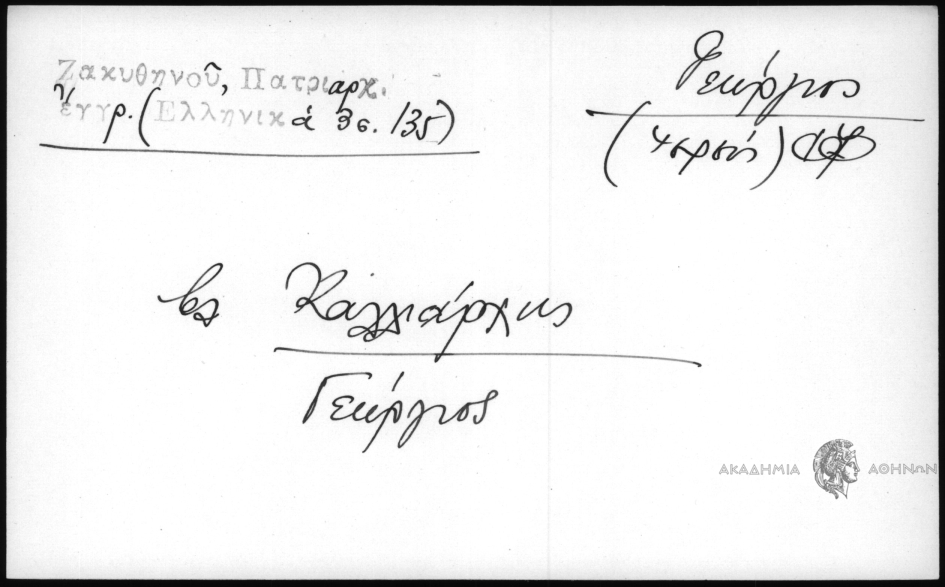 Ζακυθηνοῦ, Πατριαρχ.
ἔγγρ. (Ἑλληνικά 3 σ. 135)
Γεώργιος
(ἱερεύς)
βλ Καλλιάρχης
Γεώργιος
ΑΚΑΔΗΜΙΑ ΑΘΗΝΩΝ